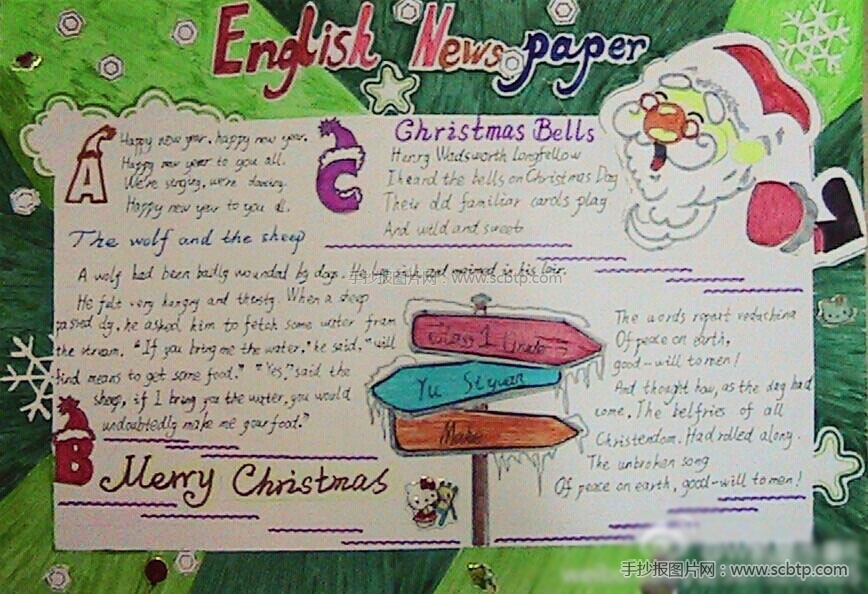 English Newspaper
A
Happy new year, happy new year.
Happy new year to you all.
We're singing, we're dancing.
Happy new year to you all.
C
Christmas Bells
Henry Wadsworth Longfellow
I heard the bells on Christmas Day
Their old familiar carols play
And wild and sweet
The wolf and the sheep
A wolf had been badly wounded by dogs. He lay sick and maimed in his lair.
手抄报图片网：www.scbtp.com
He felt very hungry and thirsty. When a sheep
passed dy, he asked him to fetch some water from
the stream. "If you bring me the water," he said, "will
find means to get some food." "Yes," said the
sheep, if I bring you the water, you would
undoubtedly make me your food."
B
Merry Christmas
Class 1 Grade
Yu Siyuan
Make
The words repart
Of peace on earth,
good-will to men!
And thought how, as the day had
come, The belfries of all
Christendom. Had rolled along.
The unbroken song
Of peace on earth, good-will to men!
手抄报图片网：www.scbtp.com